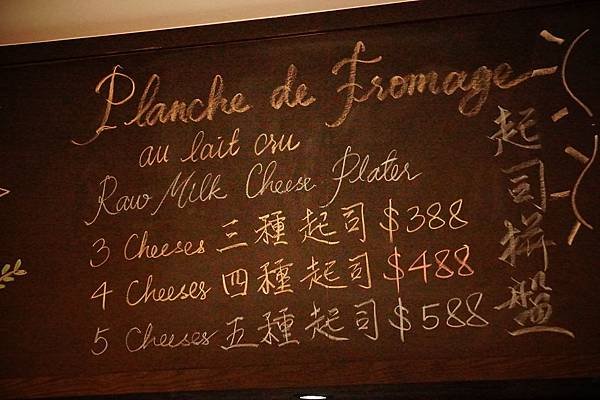 Planche de Fromage
au lait cru
Raw Milk Cheese Plater
3 Cheeses 三種起司 $388
4 Cheeses 四種起司 $488
5 Cheeses 五種起司 $588
起司拼盤